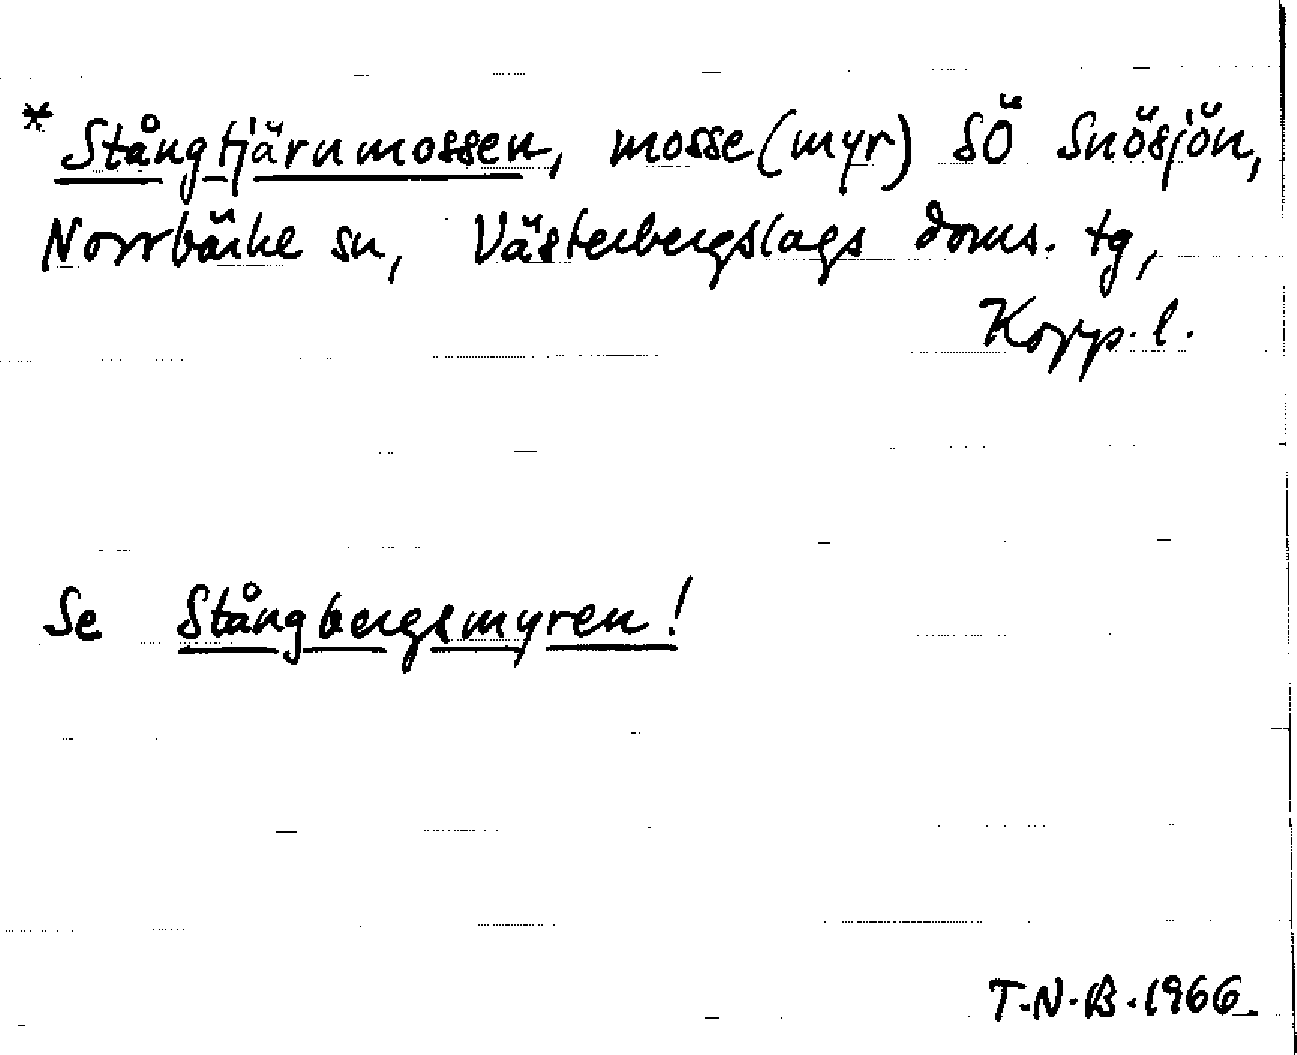 * Stångtjärnmossen, mosse (myr) SÖ Snösjön,
Norrbärke sn, Västerbergslags doms. tg,
Kopp. l.
Se Stångbergsmyren!
T.N.B. 1966.